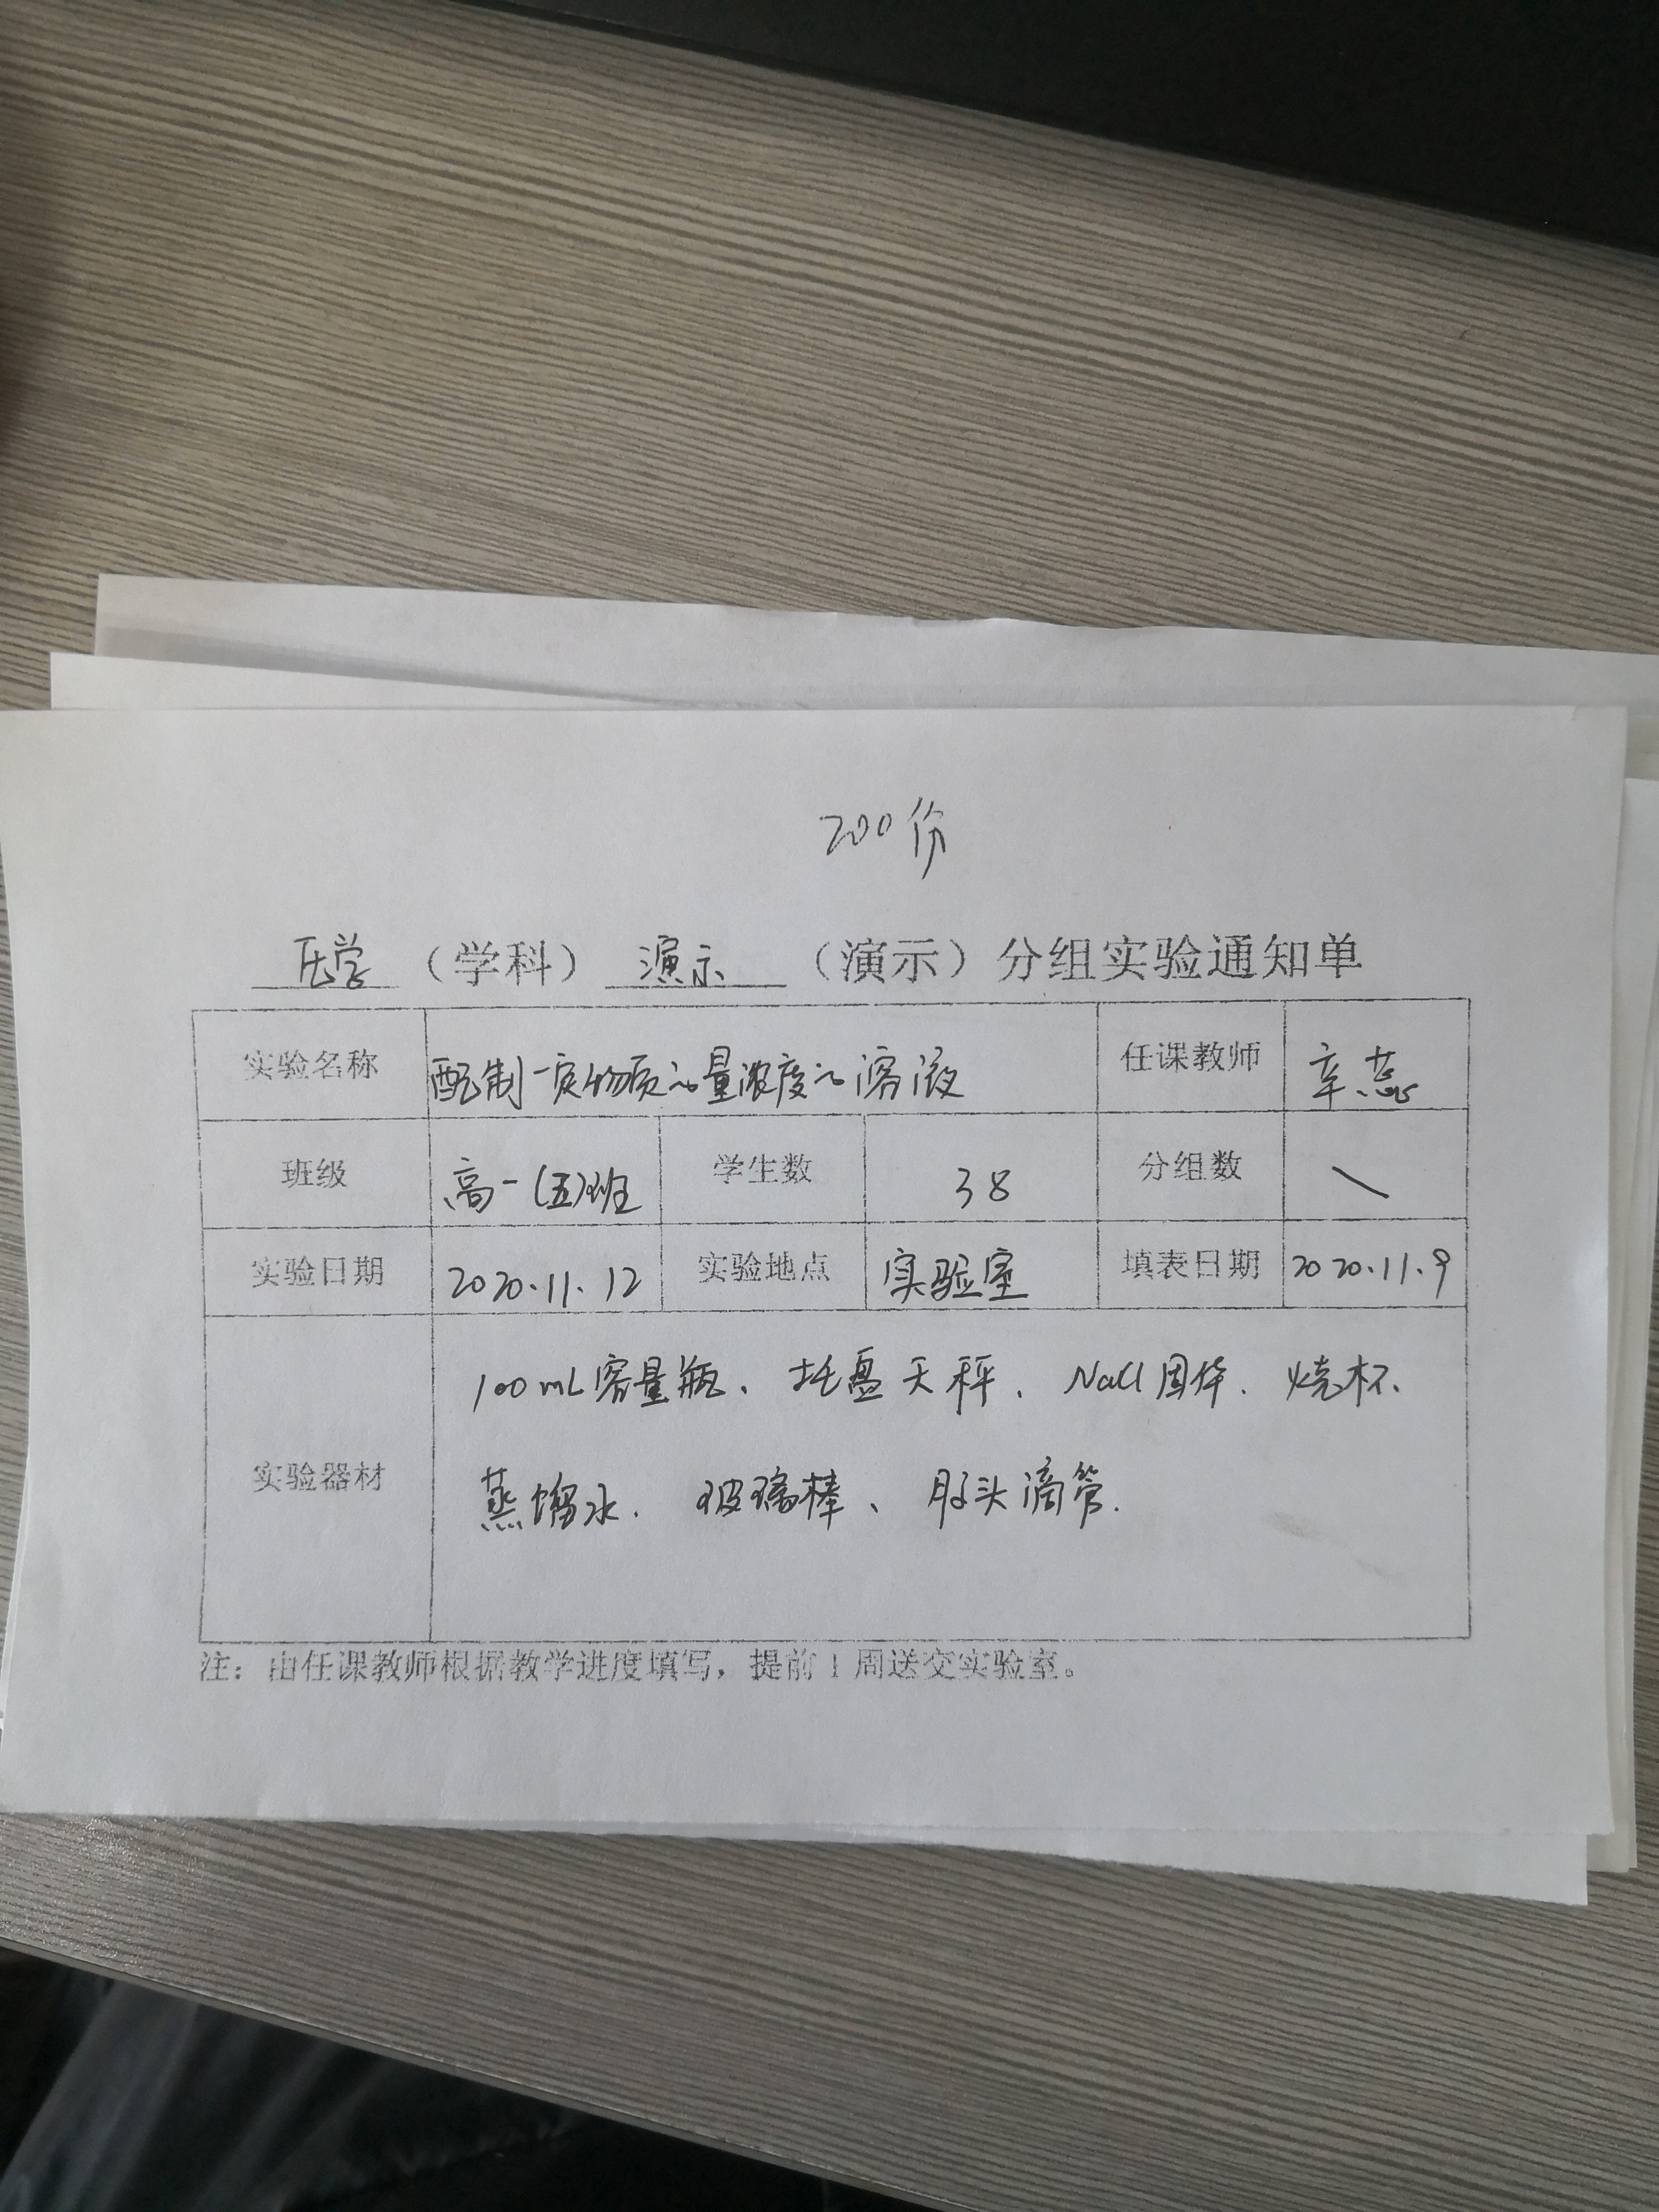 200份
化学（学科）演示（演示）分组实验通知单
实验名称 配制一定物质的量浓度的溶液 任课教师 辛蕊
班级 高一(五)班 学生数 38 分组数 \
实验日期 2020.11.12 实验地点 实验室 填表日期 2020.11.9
100mL容量瓶、托盘天秤、NaCl固体、烧杯、
实验器材
蒸馏水、玻璃棒、胶头滴管.
注：由任课教师根据教学进度填写，提前1周送交实验室。